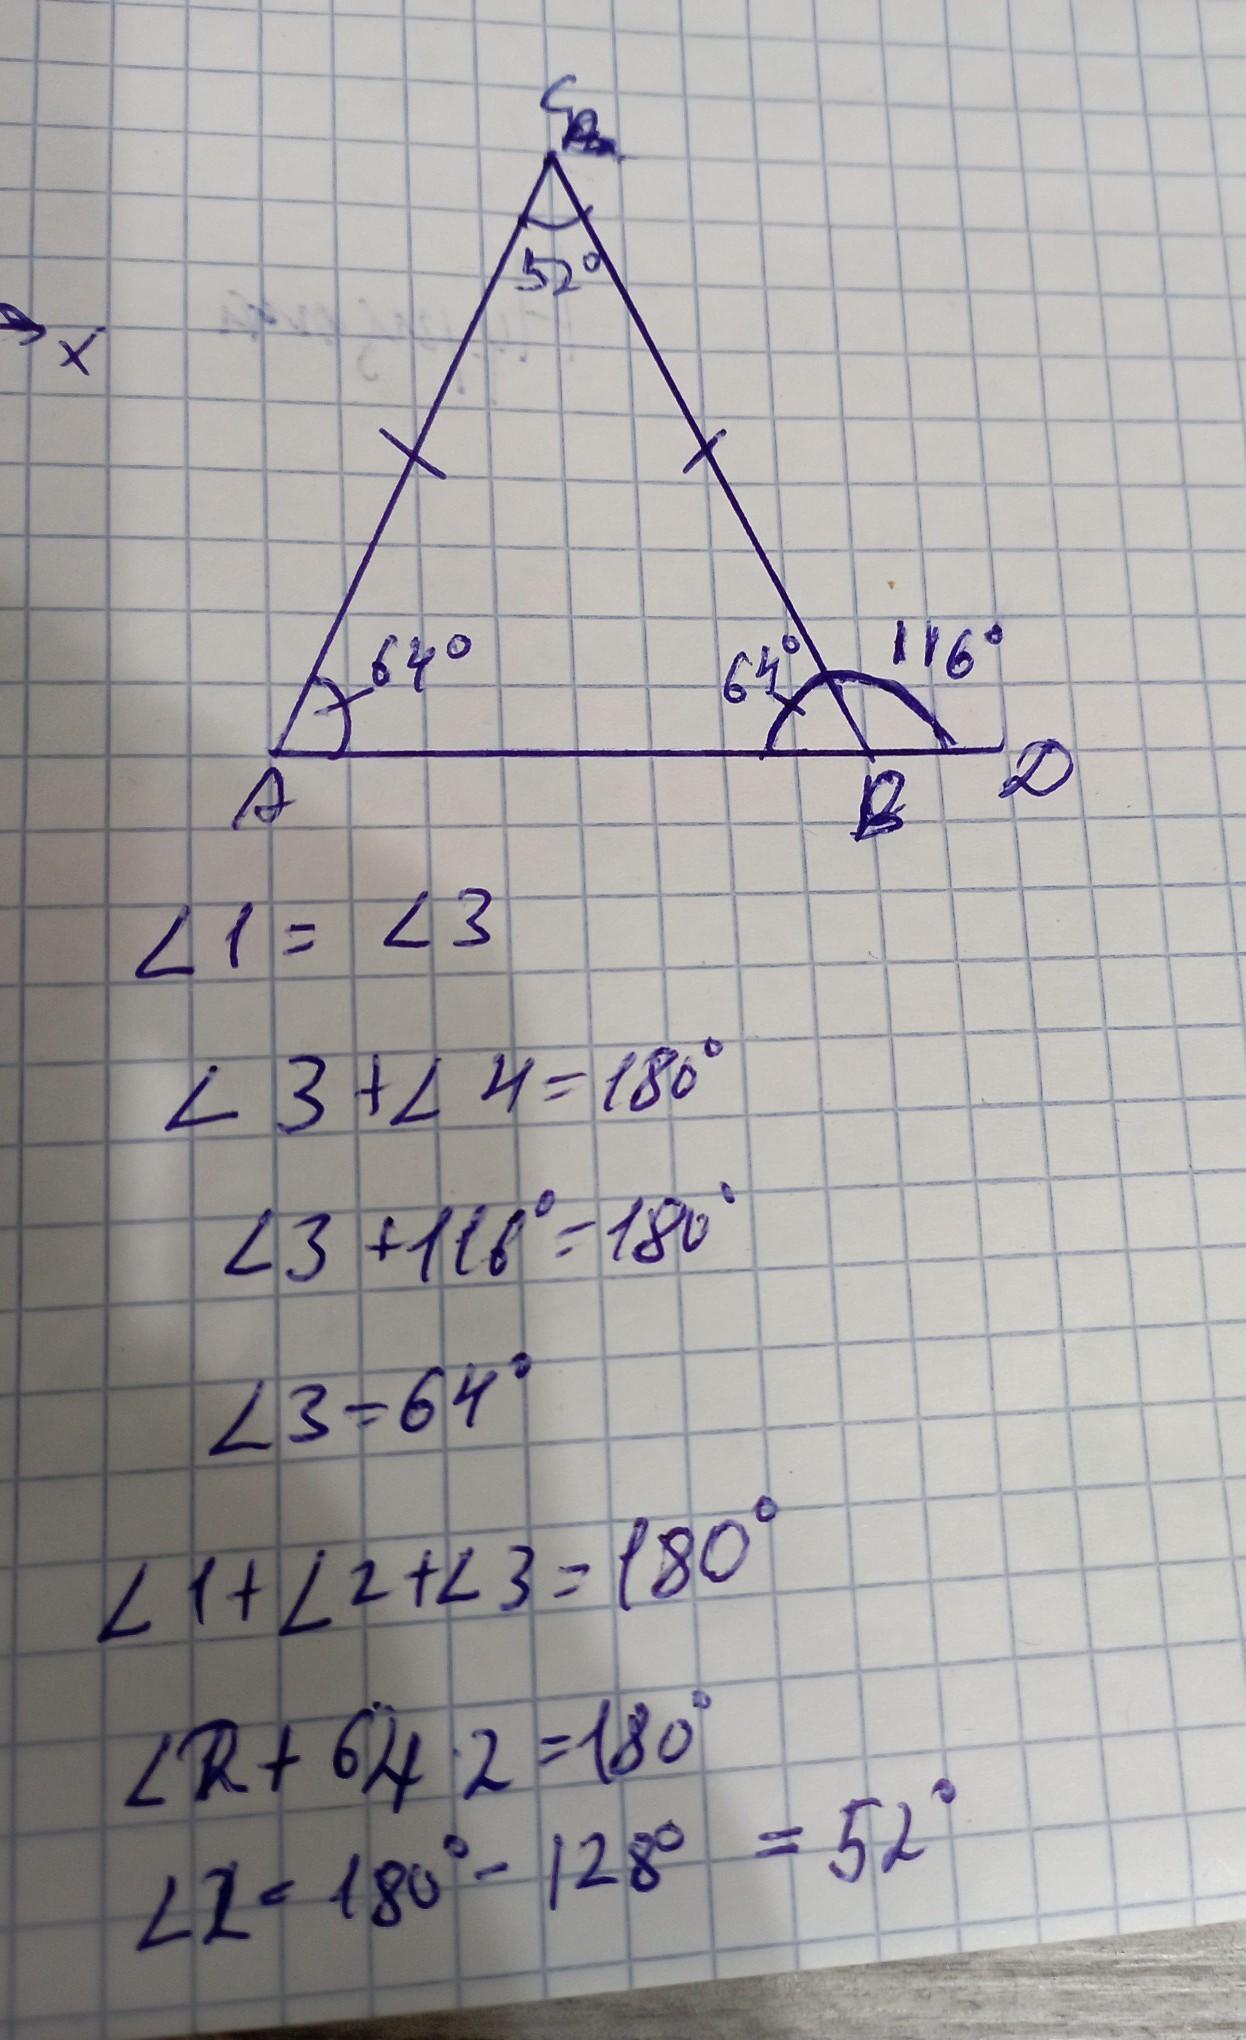 C
52°
x
64°
64°
116°
A
B
D
∠1 = ∠3
∠3+∠4=180°
∠3+116°=180°
∠3=64°
∠1+∠2+∠3=180°
∠2+64·2=180°
∠2=180°-128° =52°